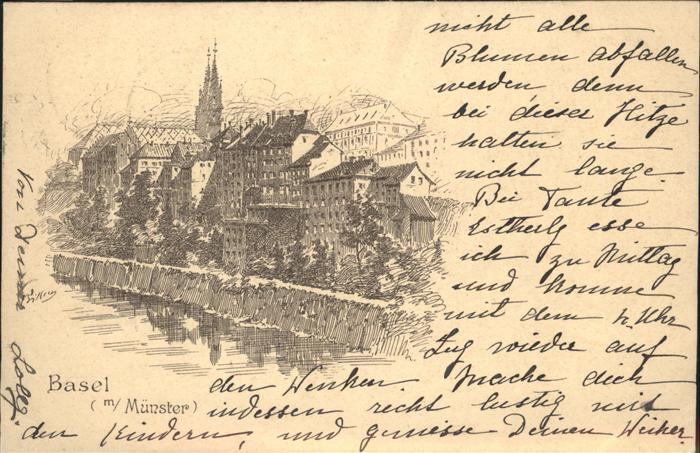 nicht alle
Blumen abfallen
werden, denn
bei dieser Hitze
halten sie
nicht lange.
Bei Tante
esse
ich zu Mittag
und komme
mit dem 4 Uhr
Zug wieder auf
den Wenken. Mache dich
indessen recht lustig mit
den Kindern, und geniesse Deinen Weiher.
Von Deiner
Basel
(m/ Münster)